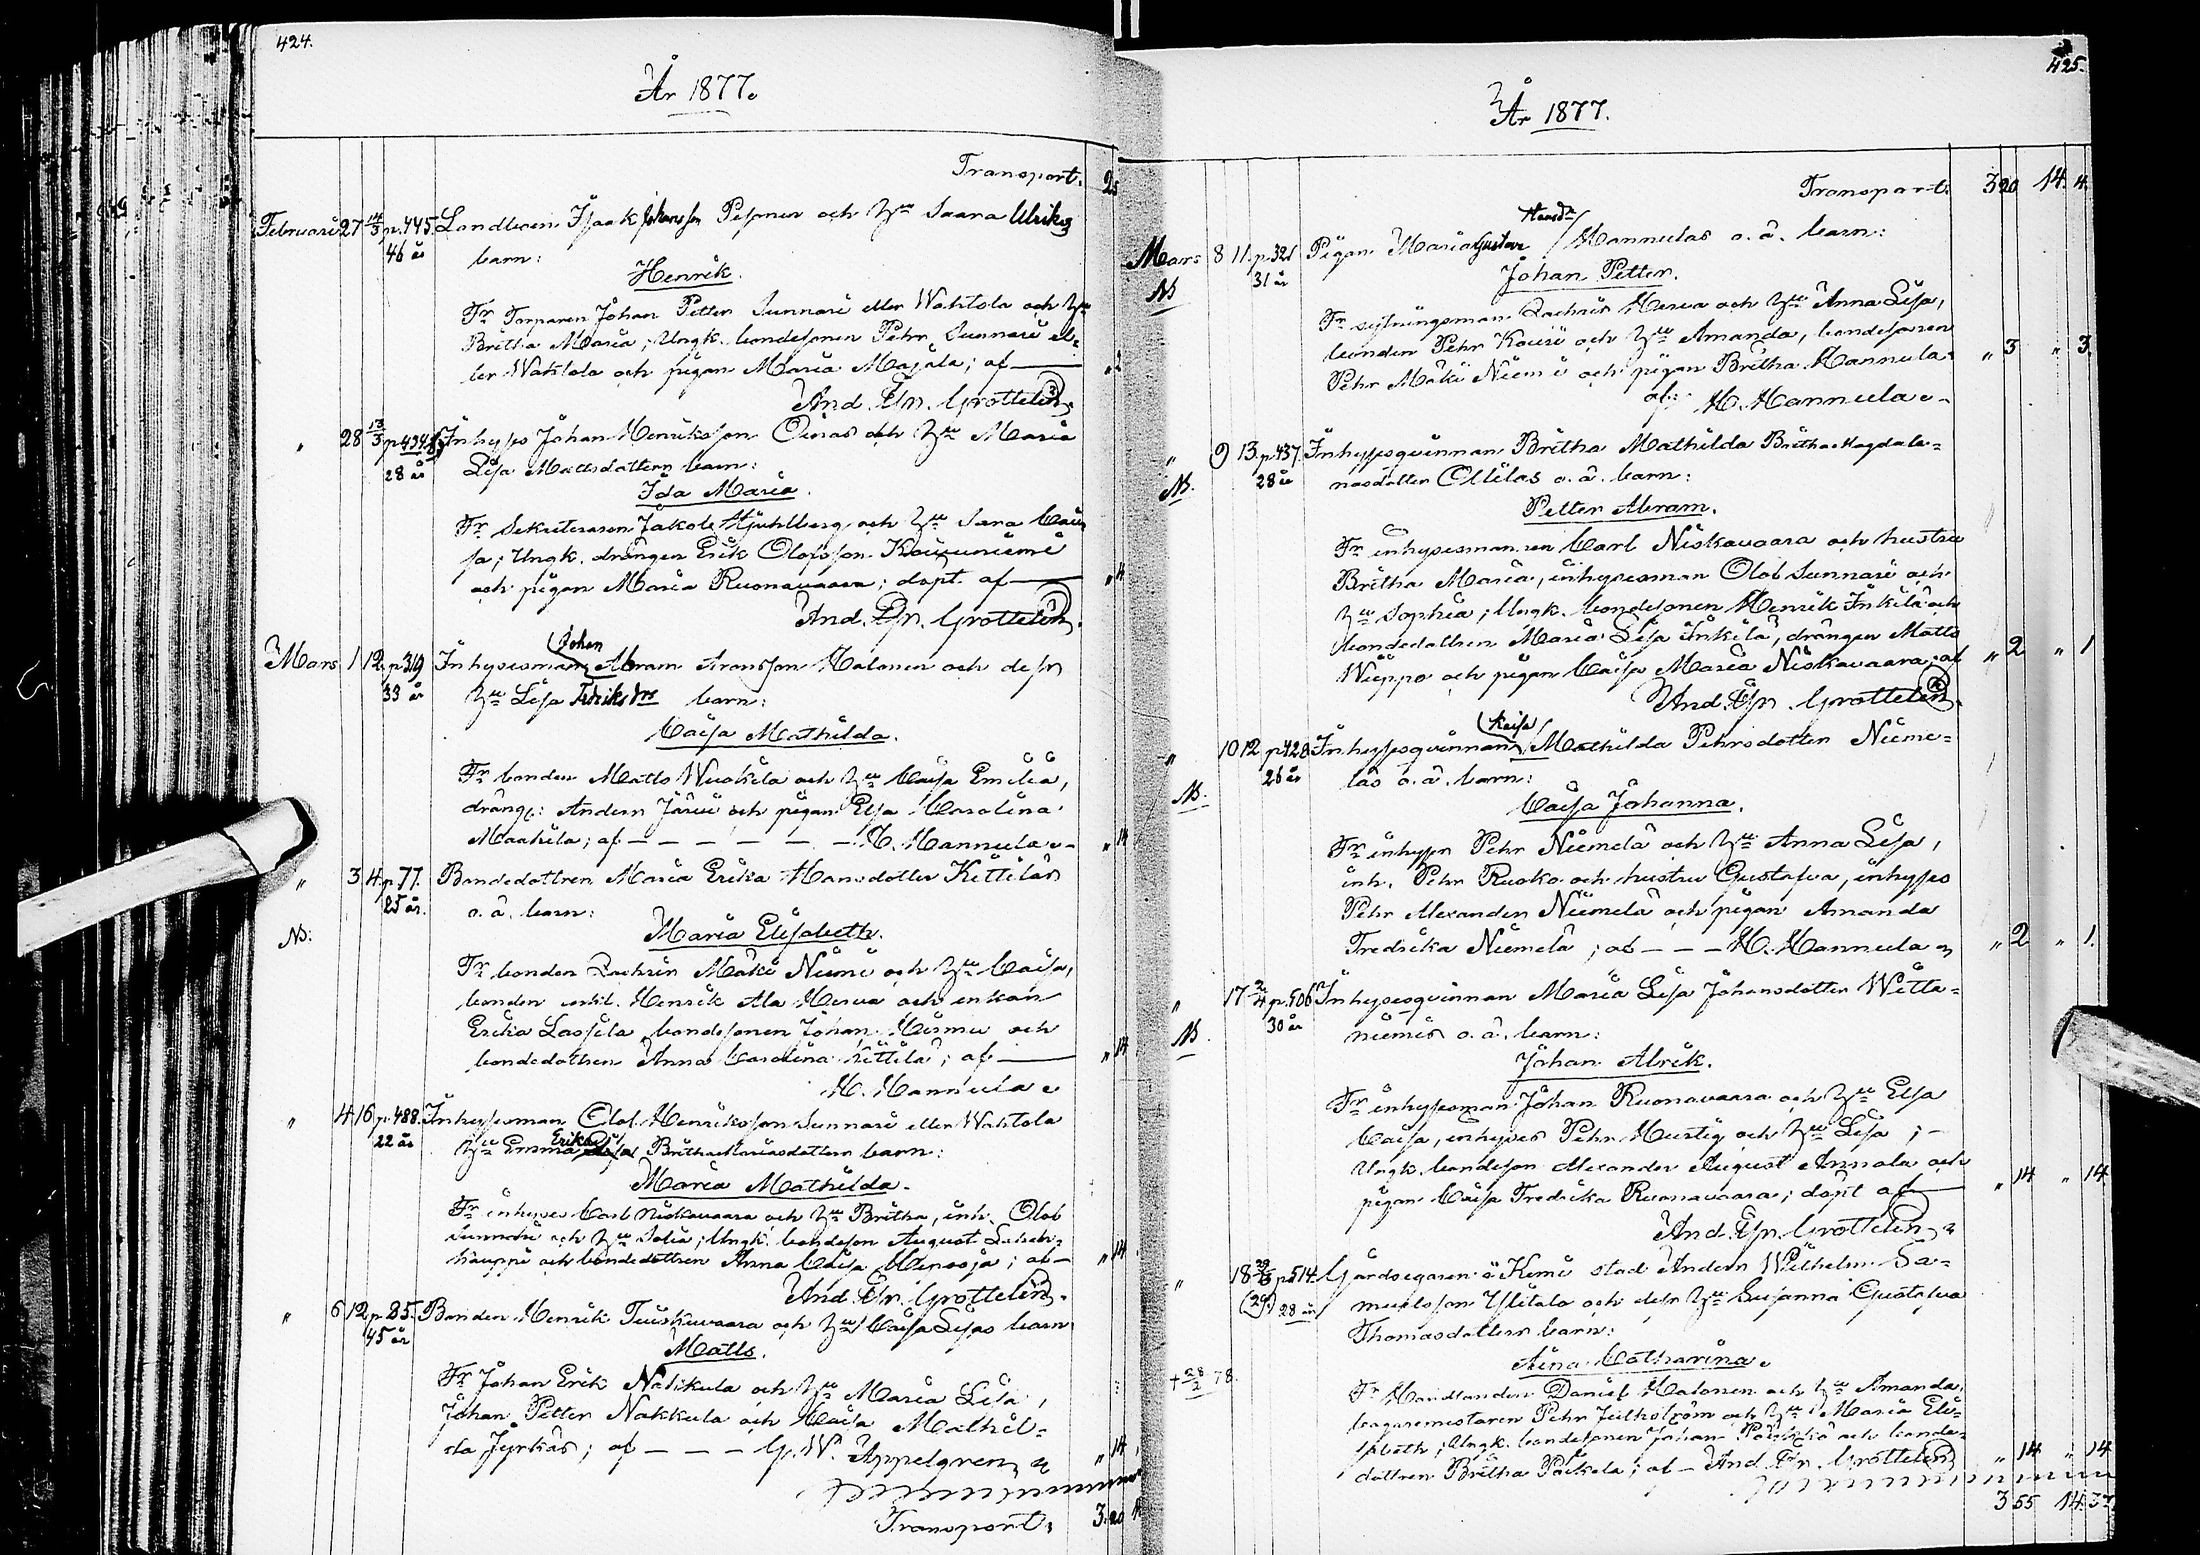 424.
År 1877.
Transport. 25
Februari 27 14/3 p.445. Landtbon Isaak Johansson Pesonen och Hu Saara Ulrikas
46 år barn:
Henrik.
Fr Torparen Johan Petter Sunnari eller Wahtola och Hu
Britha Maria, Ungk. bondesonen Pehr Sunnari el-
ler Wahtola och pigan Maria Majala; af
And. Gr. Grottelin
" 28 13/3 p.434 Inhyses Johan Henriksson Oinas och Hu Maria
28 år Lisa Mattsdotters barn:
Ida Maria.
Fr Sekreteraren Jakob Stjuhlberg och Hu Sara Cai
sa; Ungk. drängen Erik Olofsson Koivuniemi
och pigan Maria Ruonavaara; döpt af " 14
And. Gr. Grottelin.
Johan
Mars 1 12 p.319 Inhysesman Abram Aronsson Halonen och dess
33 år Hu Lisa Fedriks dra barn:
Caisa Mathilda.
Fr bonden Matts Wuokila och Hu Caisa Emilia,
dräng: Anders Järvi och pigan Elsa Carolina
Maahila; af — — — — — H. Hannula " 14
" 3 4 p.77. Bondedottren Maria Erika Hansdotter Kittiläs
25 år. o. ä. barn:
Nb:
Maria Elisabeth.
Fr bonden Zachris Mäki Niemi och Hu Caisa,
bonden Henrik Ala Herva och enkan
Erika Lassila, bondesonen Johan Hirmu och
bondedottren Anna Carolina Kittilä; af " 14
H. Hannula
" 4 16 p.488. Inhysesman Olof Henriksson Sunnari eller Wahtola
22 år Hu Emma Erika Britha Mariasdotters barn:
Maria Mathilda.
Fr inhyses Carl Niskavaara och Hu Britha, inh. Olof
Sunnari och Hu Sofia; Ungk. bondeson August Laken-
kauppi och bondedottren Anna Caisa Marsoja; af — " 14
And. Gr. Grottelin.
" 6 12 p.85. Bonden Henrik Tuiskuvaara och Hu Caisa Lisas barn
45 år
Matts.
Fr Johan Erik Nakkula och Hu Maria Lisa,
Johan Petter Nakkula och Caisa Mathil-
da Jyrkäs; af — — — G. W. Appelgren " 14
Transport. 3.20
425.
År 1877.
Transport. 3 20 14. 4.
Hansdr
Mars 8 11. p.321 Pigan Maria Gustava Hannulas o. ä. barn:
Nb 31 år Johan Petter.
Fr sytningsman Zachris Herva och Hu Anna Lisa,
bonden Pehr Kouri och Hu Amanda, bondesonen
Pehr Mäki Niemi och pigan Britha Hannula " 3 " 3.
af: H. Hannula
" 9 13. p.437. Inhysesqvinnan Britha Mathilda Britha Magdale-
Nb. 28 år nasdotter Ollilas o. ä. barn:
Petter Abram.
Fr inhysesmannen Carl Niskavaara och hustru
Britha Maria, inhysesman Olob Sunnari och
Hu Sophia; Ungk. bondesonen Henrik Inkilä och
bondedottren Maria Lisa Inkilä, drängen Matts
Wieppo och pigan Caisa Maria Niskavaara; af " 2 " 1
And. Gr. Grottelin.
Kaisa
" 10 12 p.428 Inhysesqvinnan Mathilda Pehrsdotter Nieme-
Nb. 26 år läs o. ä. barn:
Caisa Johanna.
Fr inhyses Pehr Niemelä och Hu Anna Lisa,
inh. Pehr Ruoko och hustru Gustafva, inhyses
Pehr Alexander Niemelä och pigan Amanda
Fredrika Niemelä; af — — — H. Hannula " 2 " 1.
" 17 2/4 p.506 Inhysesqvinnan Maria Lisa Johansdotter Witta-
Nb. 30 år niemis o. ä. barn:
Johan Alrik.
Fr inhysesman Johan Ruonavaara och Hu Elsa
Caisa, inhyses Pehr Hurtig och Hu Lisa; —
Ungk. bondeson Alexander August Annala och
pigan Caisa Fredrika Ruonavaara; döpt af " 14 " 14
And. Gr. Grottelin
" 18 29/3 p.514. Gårdsegaren i Kemi stad Anders Wilhelm Sa-
(29) 28 år muelsson Ylitalo och dess Hu Susanna Gustafva
Thomasdotters barn:
+ 28/2 78. Aina Catharina.
Fr Handlanden Daniel Halonen och Hu Amanda,
bagaremestaren Pehr Julhström och Hu Maria Eli-
sabeth; Ungk. bondesonen Johan och bonde-
dottren Britha Pöckelä; af — And. Gr. Grottelin " 14 " 14
3 55 14. 37.